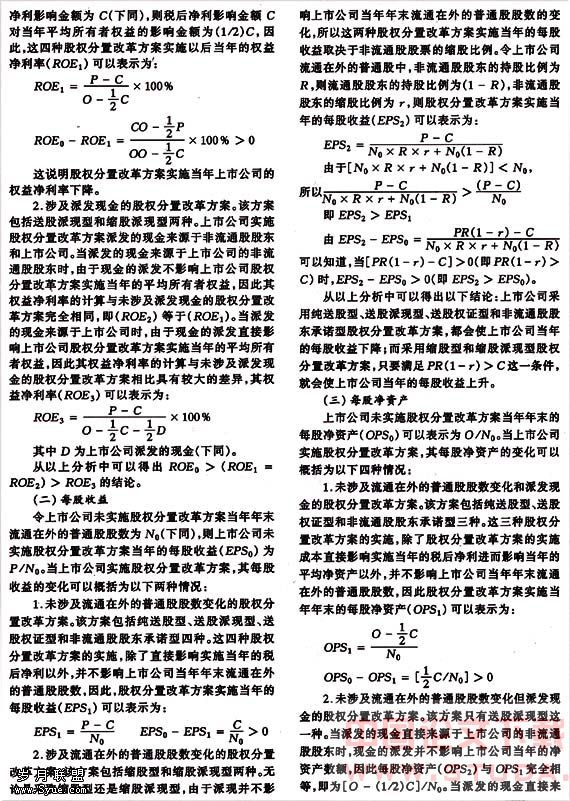 净利影响金额为 C(下同),则税后净利影响金额 C
对当年平均所有者权益的影响金额为(1/2)C,因
此,这四种股权分置改革方案实施以后当年的权益
净利率(ROE₁)可以表示为:
ROE₁ = (P − C)/(O − ½C) × 100%
ROE₀ − ROE₁ = (CO − ½P)/(OO − ½C) × 100% > 0
这说明股权分置改革方案实施当年上市公司的
权益净利率下降。
2.涉及派发现金的股权分置改革方案。该方案
包括送股派现型和缩股派现型两种。上市公司实施
股权分置改革方案派发的现金来源于非流通股股东
和上市公司。当派发的现金来源于上市公司的非流
通股股东时,由于现金的派发不影响上市公司股权
分置改革方案实施当年的平均所有者权益,因此其
权益净利率的计算与未涉及派发现金的股权分置改
革方案完全相同,即(ROE₂)等于(ROE₁)。当派发
的现金来源于上市公司时,由于现金的派发直接影
响上市公司股权分置改革方案实施当年的平均所有
者权益,因此其权益净利率的计算与未涉及派发现
金的股权分置改革方案相比具有较大的差异,其权
益净利率(ROE₃)可以表示为:
ROE₃ = (P − C)/(O − ½C − ½D) × 100%
其中 D 为上市公司派发的现金(下同)。
从以上分析中可以得出 ROE₀ > (ROE₁ =
ROE₂) > ROE₃ 的结论。
(二)每股收益
令上市公司未实施股权分置改革方案当年年末
流通在外的普通股股数为 N₀(下同),则上市公司未
实施股权分置改革方案当年的每股收益(EPS₀)为
P/N₀。当上市公司实施股权分置改革方案,其每股
收益的变化可以概括为以下两种情况:
1.未涉及流通在外的普通股股数变化的股权分
置改革方案。该方案包括纯送股型、送股派现型、送
股权证型和非流通股股东承诺型四种。这四种股权
分置改革方案的实施,除了直接影响实施当年的税
后净利以外,并不影响上市公司当年年末流通在外
的普通股股数,因此,股权分置改革方案实施当年的
每股收益(EPS₁)可以表示为:
EPS₁ = (P − C)/N₀ EPS₀ − EPS₁ = C/N₀ > 0
2.涉及流通在外的普通股股数变化的股权分置
改革方案。该方案包括缩股型和缩股派现型两种。无
论是缩股型还是缩股派现型,由于派现并不影
响上市公司当年年末流通在外的普通股股数的变
化,所以这两种股权分置改革方案实施当年的每股
收益取决于非流通股股票的缩股比例。令上市公司
流通在外的普通股中,非流通股股东的持股比例为
R,则流通股股东的持股比例为(1 − R),非流通股
股东的缩股比例为 r,则股权分置改革方案实施当
年的每股收益(EPS₂)可以表示为:
EPS₂ = (P − C)/(N₀ × R × r + N₀(1 − R))
由于[N₀ × R × r + N₀(1 − R)] < N₀,
所以 (P − C)/(N₀ × R × r + N₀(1 − R)) > (P − C)/N₀
即 EPS₂ > EPS₁
由 EPS₂ − EPS₀ = (PR(1 − r) − C)/(N₀ × R × r + N₀(1 − R))
可以知道,当[PR(1 − r) − C] > 0(即 PR(1 − r) >
C)时,EPS₂ − EPS₀ > 0(即 EPS₂ > EPS₀)。
从以上分析中可以得出以下结论:上市公司采
用纯送股型、送股派现型、送股权证型和非流通股股
东承诺型股权分置改革方案,都会使上市公司当年
的每股收益下降;而采用缩股型和缩股派现型股权
分置改革方案,只要满足 PR(1 − r) > C 这一条件,
就会使上市公司当年的每股收益上升。
(三)每股净资产
上市公司未实施股权分置改革方案当年年末的
每股净资产(OPS₀)可以表示为 O/N₀。当上市公司
实施股权分置改革方案,其每股净资产的变化可以
概括为以下四种情况:
1.未涉及流通在外的普通股股数变化和派发现
金的股权分置改革方案。该方案包括纯送股型、送股
权证型和非流通股股东承诺型三种。这三种股权分
置改革方案的实施,除了股权分置改革方案的实施
成本直接影响实施当年的税后净利进而影响当年的
平均净资产以外,并不影响上市公司当年年末流通
在外的普通股股数,因此股权分置改革方案实施当
年年末的每股净资产(OPS₁)可以表示为:
OPS₁ = (O − ½C)/N₀
OPS₀ − OPS₁ = [½C/N₀] > 0
2.未涉及流通在外的普通股股数变化但派发现
金的股权分置改革方案。该方案只有送股派现型这
一种。当派发的现金直接来源于上市公司的非流通
股股东时,现金的派发并不影响上市公司当年的净
资产数额,因此每股净资产(OPS₂)与 OPS₁完全相
等,即为[O − (1/2)C]/N₀。当派发的现金直接来